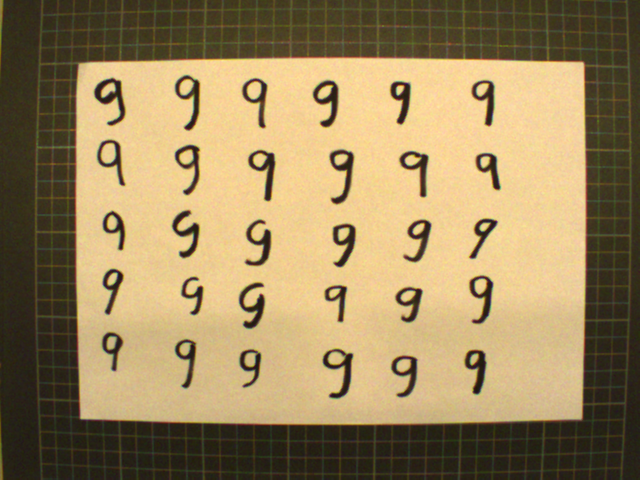 9 9 9 9 9 9
9 9 9 9 9 9
9 9 9 9 9 9
9 9 9 9 9 9
9 9 9 9 9 9